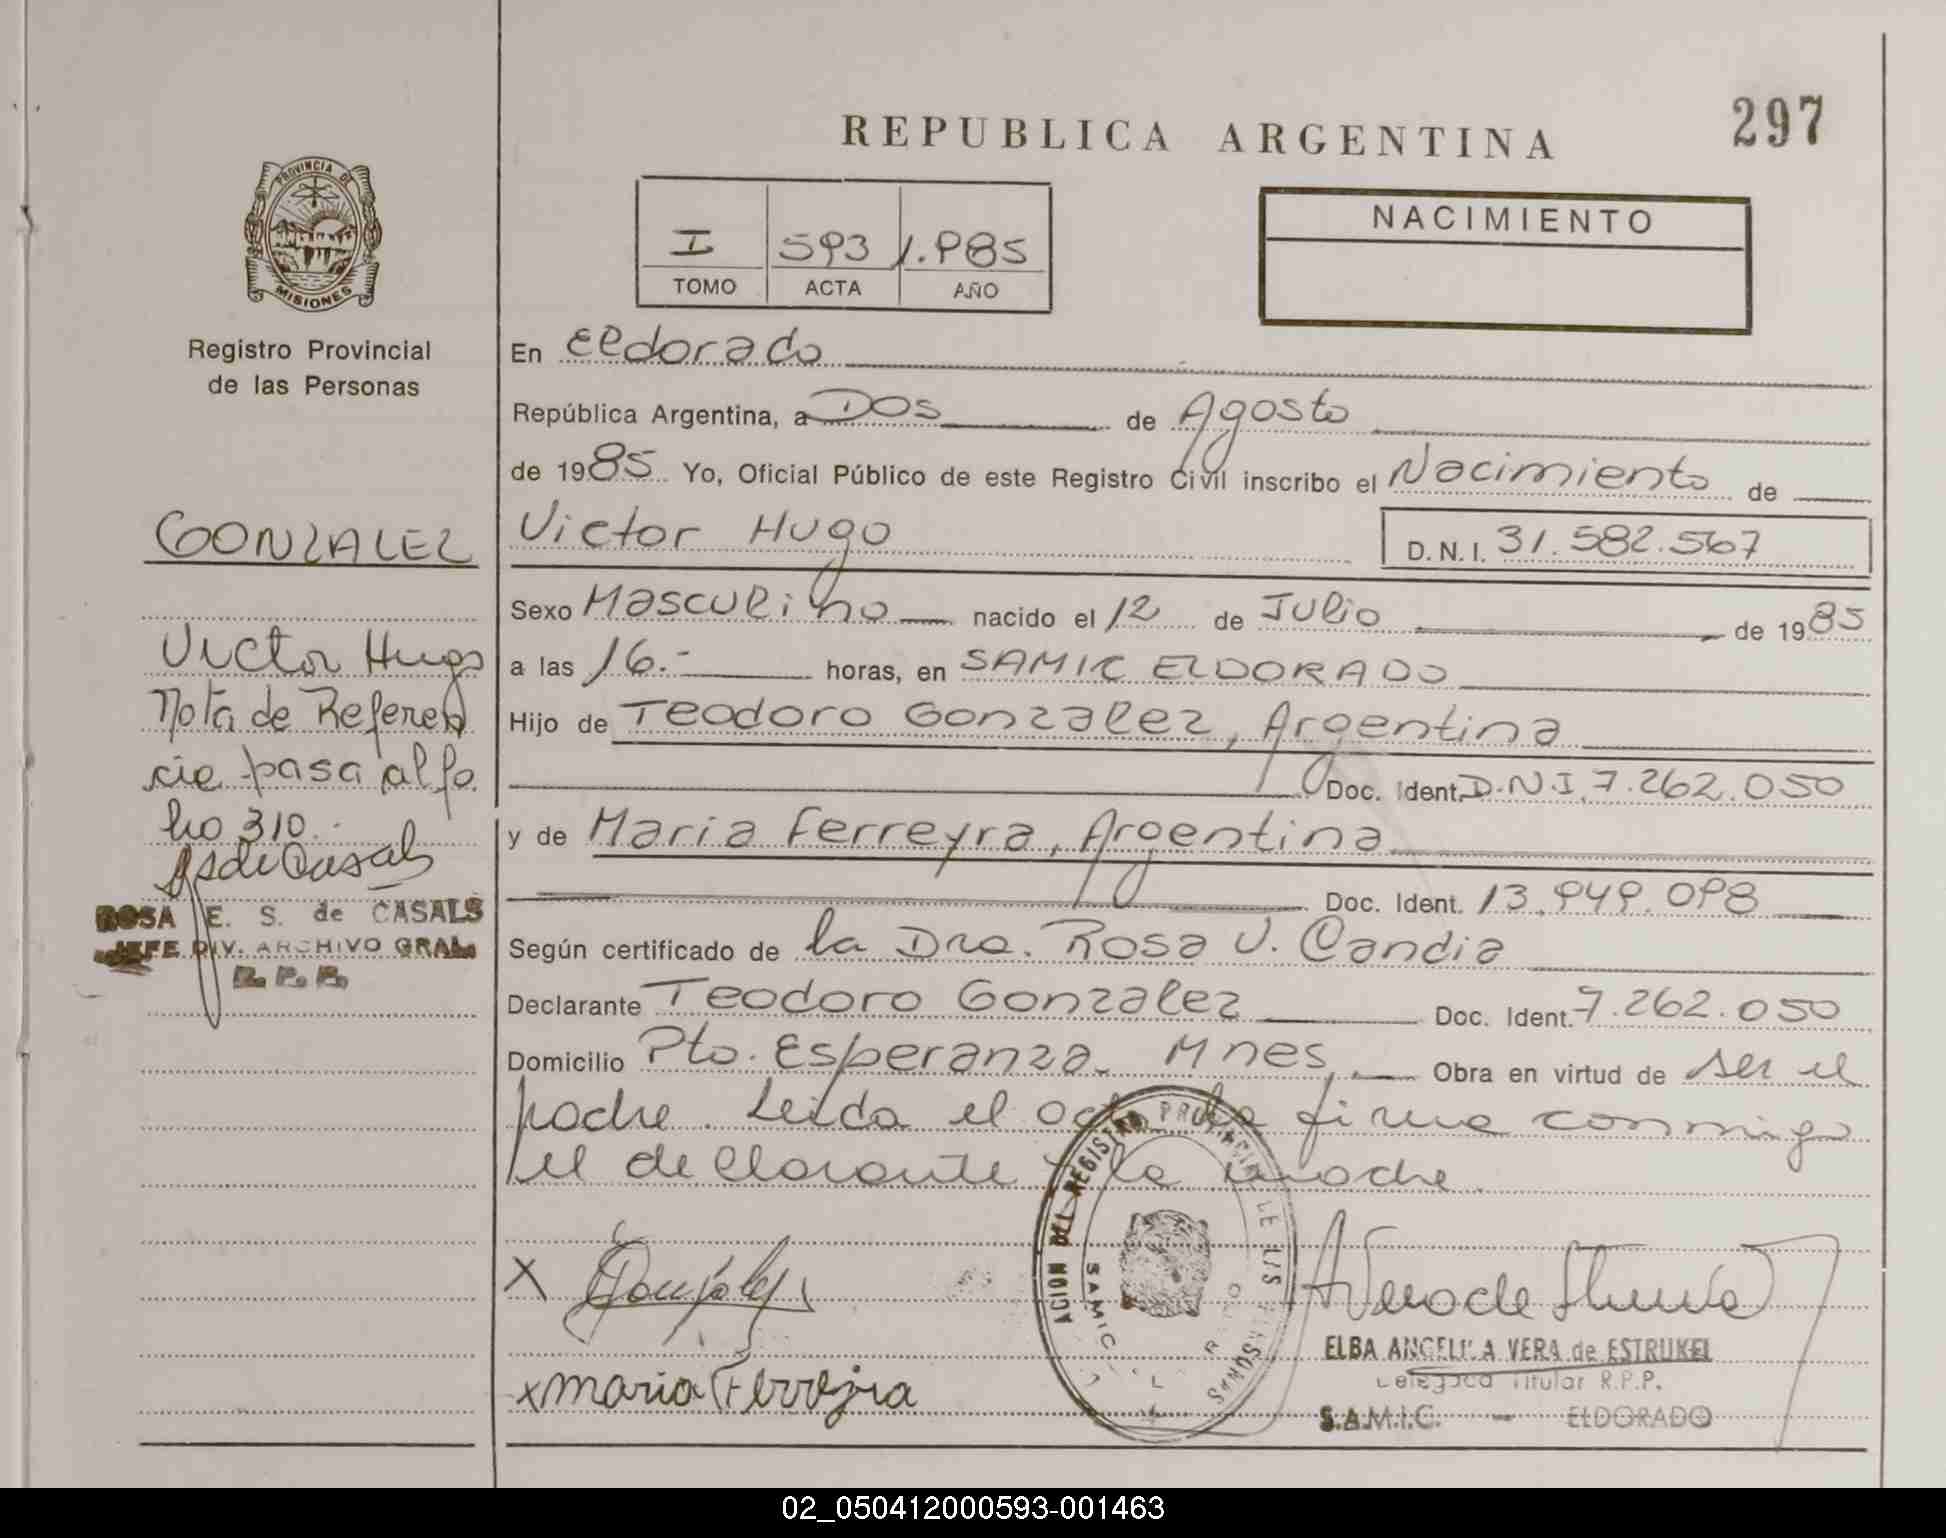 297
REPUBLICA ARGENTINA
PROVINCIA DE
MISIONES
Registro Provincial
de las Personas
I 593 1.985
TOMO ACTA AÑO
NACIMIENTO
En Eldorado
República Argentina, a Dos de Agosto
de 1985 Yo, Oficial Público de este Registro Civil inscribo el Nacimiento de
Victor Hugo D.N.I. 31.582.567
Sexo Masculino nacido el 12 de Julio de 1985
a las 16.- horas, en SAMIC ELDORADO
Hijo de Teodoro Gonzalez, Argentina
Doc. Ident. D.N.I. 7.262.050
y de Maria Ferreyra, Argentina
Doc. Ident. 13.949.098
Según certificado de la Dra. Rosa V. Candia
Declarante Teodoro Gonzalez Doc. Ident. 7.262.050
Domicilio Pto. Esperanza. Mnes, Obra en virtud de ser el
padre. Leida el acta la firma conmigo
el declarante y la madre.
GONZALEZ
Victor Hugo
Nota de Referen
cia pasa al fo
lio 310.-
ROSA E. S. de CASALS
JEFE DIV. ARCHIVO GRAL.
R.P.P.
X
x maria Ferrejra
ACION DEL REGISTRO PROVINCIAL DE LAS PERSONAS
SAMIC
ELBA ANGELICA VERA de ESTRUKEL
Delegada Titular R.P.P.
S.A.M.I.C. - ELDORADO
02_050412000593-001463